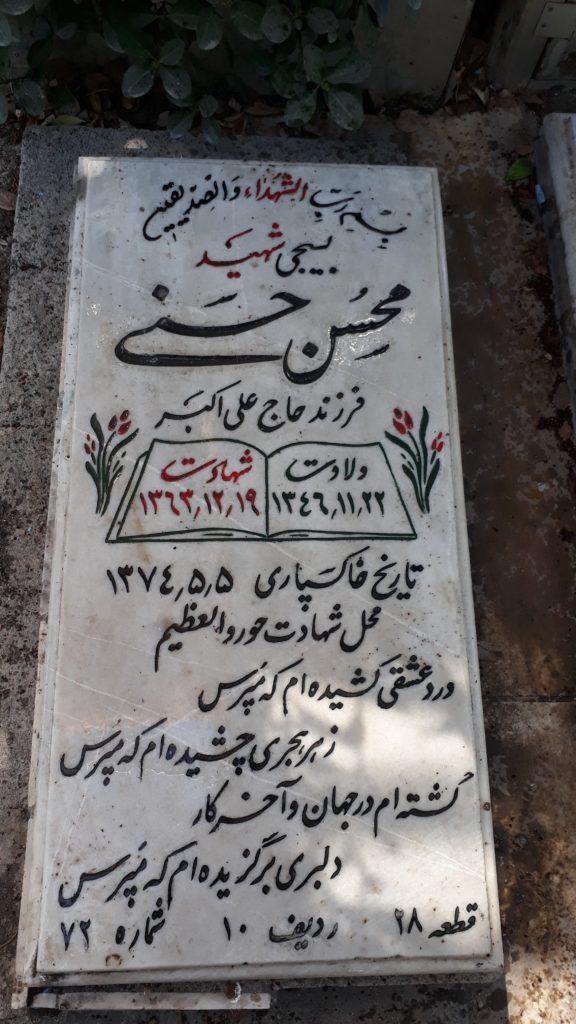 بِسْمِ رَبِّ الشُّهَداء وَالصِدیقین
بسیجی شهید
مُحسُن حَسَنی
فرزند حاج علی اکبر
ولادت شهادت
۱۳٤٦,۱۱,۲۲ ۱۳٦۳,۱۲,۱۹
تاریخ خاکسپاری ۱۳۷٤,۵,۵
محل شهادت حوروالعظیم
درد عشقی کشیده ام که مَپرس
زهر هجری چشیده ام که مَپرس
گشته ام در جهان و آخر کار
دلبری برگزیده ام که مَپرس
قطعه ۲۸ ردیف ۱۰ شماره ۷۲